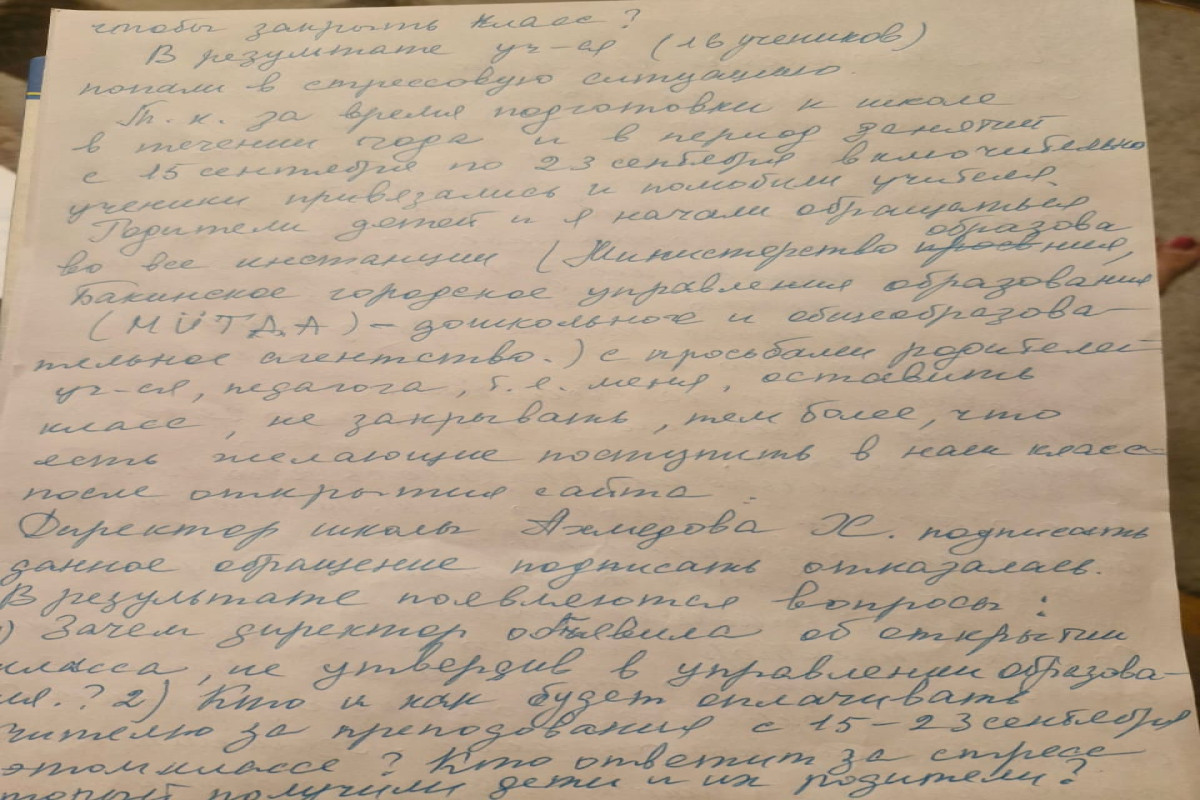 чтобы закрыть класс?
В результате уч-ся (16 учеников)
попали в стрессовую ситуацию.
Т. к. за время подготовки к школе
в течении года и в период занятий
с 15 сентября по 23 сентября включительно
ученики привязались и полюбили учителя.
Родители детей и я начали обращаться
во все инстанции (Министерство просв образования,
Бакинское городское управления образования
(MÜTDA) – дошкольное и общеобразова-
тельное агентство.) с просьбами родителей
уч-ся, педагога, т.е. меня, оставить
класс, не закрывать, тем более, что
есть желающие поступить в наш класс
после открытия сайта.
Директор школы Ахмедова Х. подписать
данное обращение подписать отказалась.
В результате появляются вопросы:
) Зачем директор объявила об открытии
класса, не утвердив в управлении образова-
ия.? 2) Кто и как будет оплачивать
чителю за преподования с 15–23 сентября
этом классе? Кто ответит за стресс
торый получили дети и их родители?